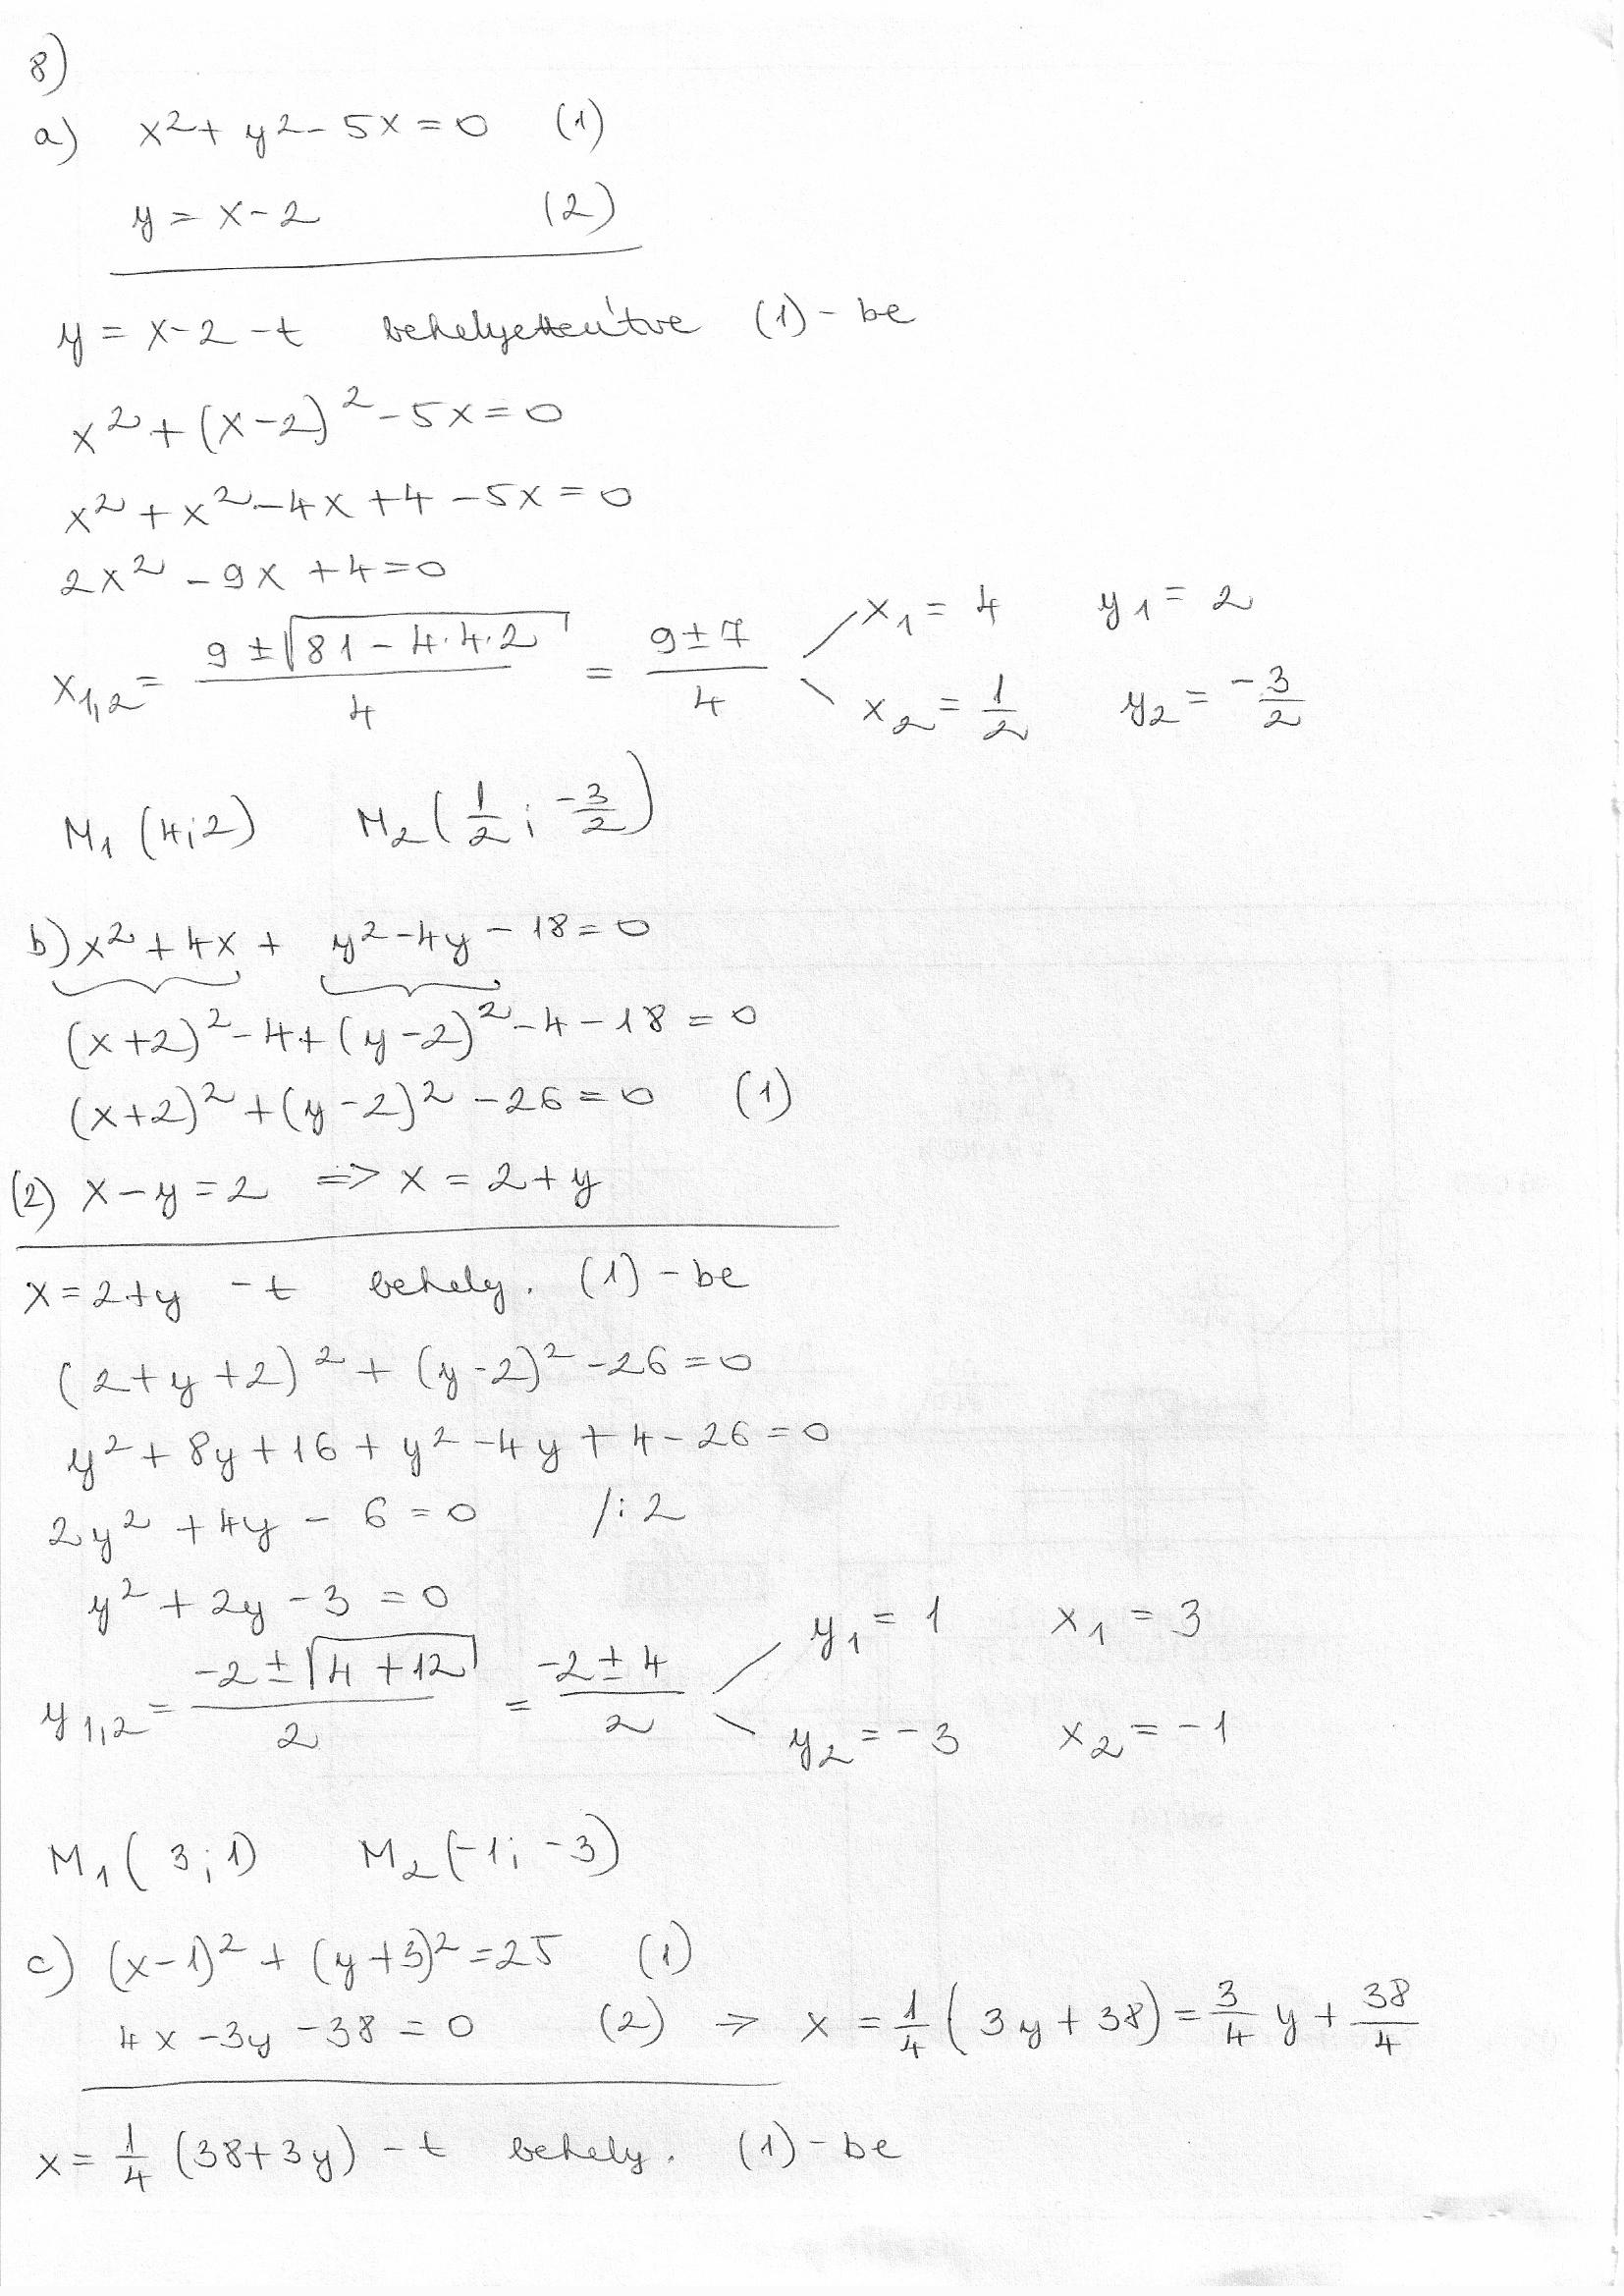 8)
a) x² + y² - 5x = 0 (1)
y = x - 2 (2)
y = x - 2 - t behelyettesítve (1) - be
x² + (x - 2)² - 5x = 0
x² + x² - 4x + 4 - 5x = 0
2x² - 9x + 4 = 0
x₁,₂ = (9 ± √(81 - 4·4·2))/4 = (9 ± 7)/4 x₁ = 4 y₁ = 2
x₂ = 1/2 y₂ = -3/2
M₁ (4; 2) M₂ (1/2; -3/2)
b) x² + 4x + y² - 4y - 18 = 0
(x + 2)² - 4 + (y - 2)² - 4 - 18 = 0
(x + 2)² + (y - 2)² - 26 = 0 (1)
(2) x - y = 2 => x = 2 + y
x = 2 + y - t behely. (1) - be
(2 + y + 2)² + (y - 2)² - 26 = 0
y² + 8y + 16 + y² - 4y + 4 - 26 = 0
2y² + 4y - 6 = 0 /: 2
y² + 2y - 3 = 0
y₁,₂ = (-2 ± √(4 + 12))/2 = (-2 ± 4)/2 y₁ = 1 x₁ = 3
y₂ = -3 x₂ = -1
M₁ (3; 1) M₂ (-1; -3)
c) (x - 1)² + (y + 3)² = 25 (1)
4x - 3y - 38 = 0 (2) → x = 1/4 (3y + 38) = 3/4 y + 38/4
x = 1/4 (38 + 3y) - t behely. (1) - be